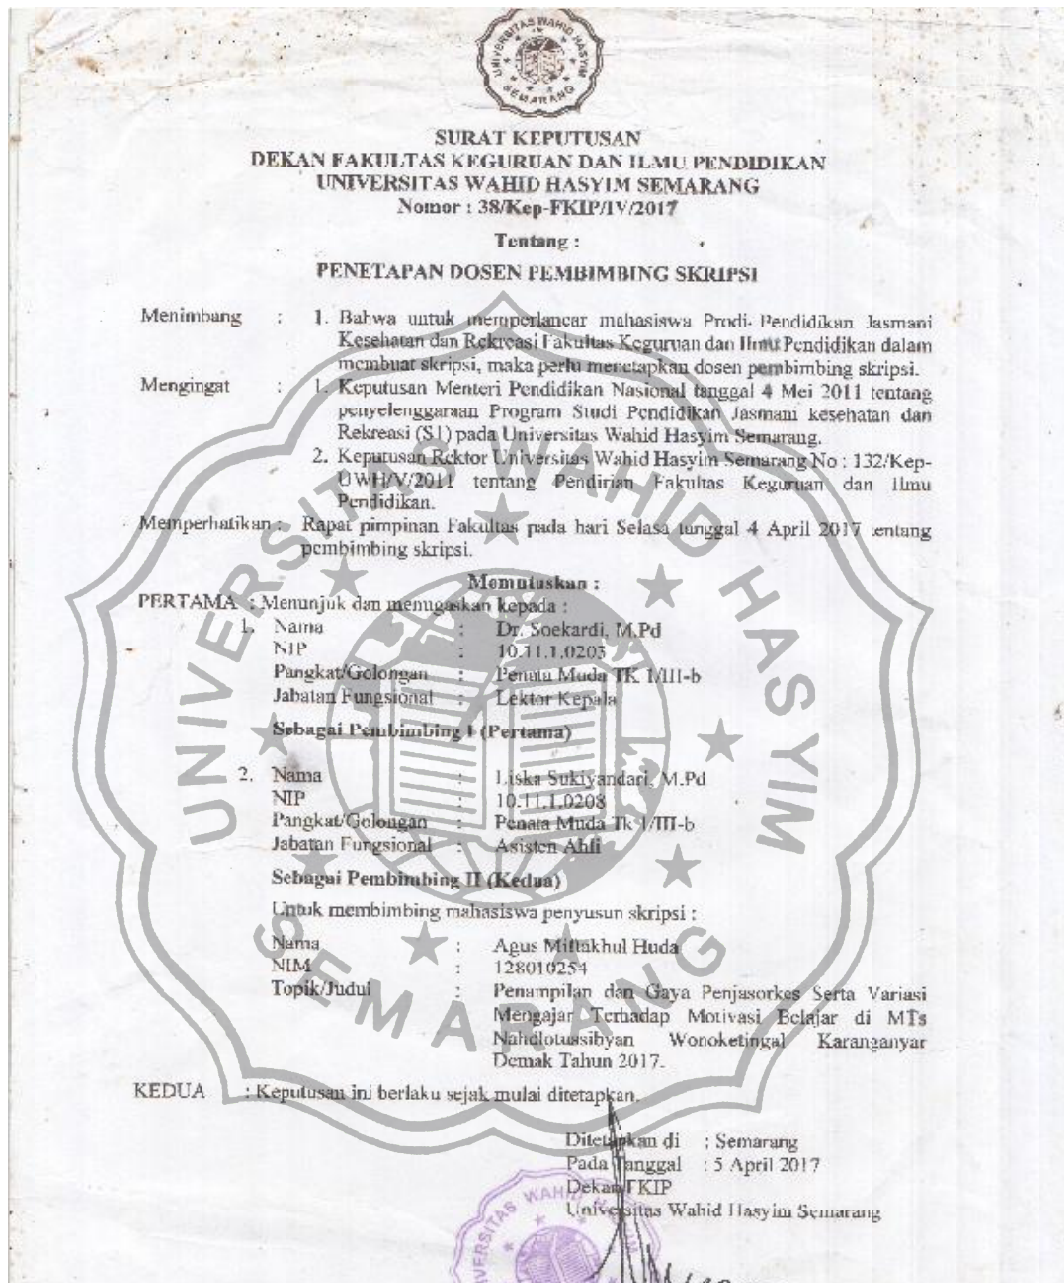 UNIVERSITAS WAHID HASYIM
SEMARANG
SURAT KEPUTUSAN
DEKAN FAKULTAS KEGURUAN DAN ILMU PENDIDIKAN
UNIVERSITAS WAHID HASYIM SEMARANG
Nomor : 38/Kep-FKIP/IV/2017
Tentang :
PENETAPAN DOSEN PEMBIMBING SKRIPSI
Menimbang : 1. Bahwa untuk memperlancar mahasiswa Prodi Pendidikan Jasmani
Kesehatan dan Rekreasi Fakultas Keguruan dan Ilmu Pendidikan dalam
membuat skripsi, maka perlu menetapkan dosen pembimbing skripsi.
Mengingat : 1. Keputusan Menteri Pendidikan Nasional tanggal 4 Mei 2011 tentang
penyelenggaraan Program Studi Pendidikan Jasmani kesehatan dan
Rekreasi (S1) pada Universitas Wahid Hasyim Semarang.
2. Keputusan Rektor Universitas Wahid Hasyim Semarang No : 132/Kep-
UWH/V/2011 tentang Pendirian Fakultas Keguruan dan Ilmu
Pendidikan.
Memperhatikan : Rapat pimpinan Fakultas pada hari Selasa tanggal 4 April 2017 tentang
pembimbing skripsi.
Memutuskan :
PERTAMA : Menunjuk dan menugaskan kepada :
1. Nama : Dr. Soekardi, M.Pd
NIP : 10.11.1.0203
Pangkat/Golongan : Penata Muda TK I/III-b
Jabatan Fungsional : Lektor Kepala
Sebagai Pembimbing I (Pertama)
2. Nama : Liska Sukiyandari, M.Pd
NIP : 10.11.1.0208
Pangkat/Golongan : Penata Muda Tk I/III-b
Jabatan Fungsional : Asisten Ahli
Sebagai Pembimbing II (Kedua)
Untuk membimbing mahasiswa penyusun skripsi :
Nama : Agus Miftakhul Huda
NIM : 128010254
Topik/Judul : Penampilan dan Gaya Penjasorkes Serta Variasi
Mengajar Terhadap Motivasi Belajar di MTs
Nahdlotussibyan Wonoketingal Karanganyar
Demak Tahun 2017.
KEDUA : Keputusan ini berlaku sejak mulai ditetapkan.
Ditetapkan di : Semarang
Pada Tanggal : 5 April 2017
Dekan FKIP
Universitas Wahid Hasyim Semarang
UNIVERSITAS WAHID HASYIM
SEMARANG